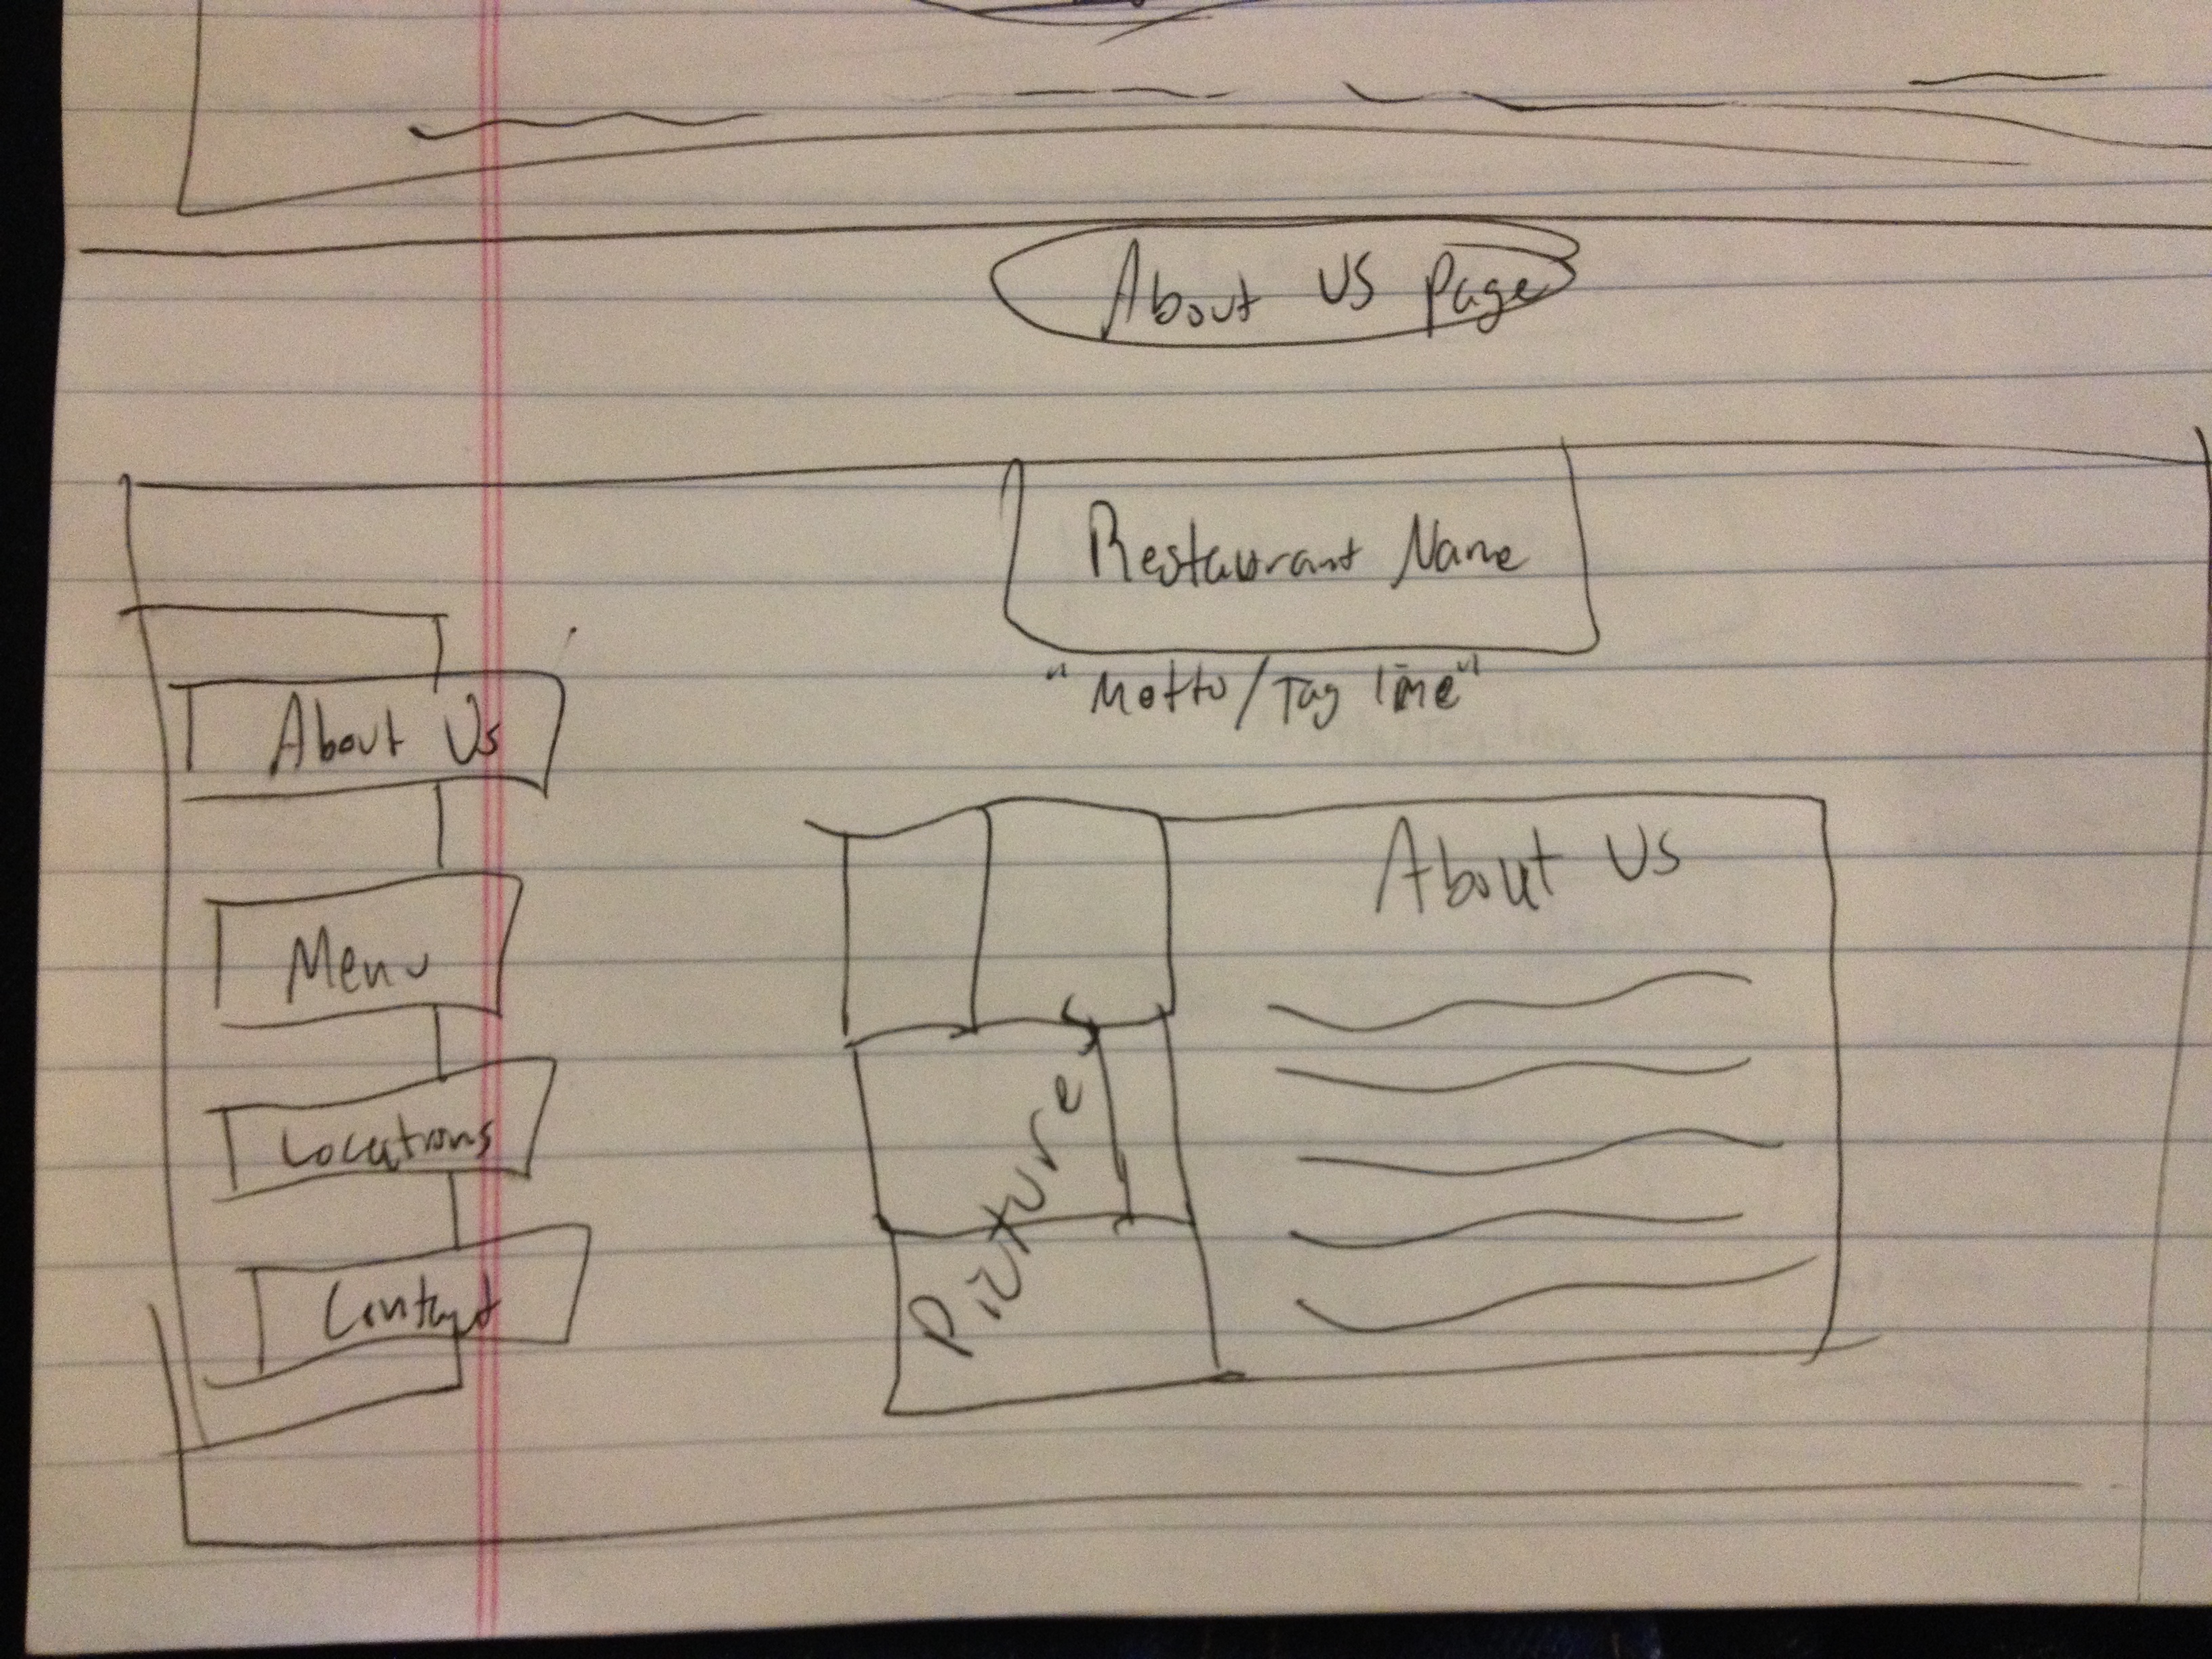 About US Page
Restaurant Name
"Motto/Tag line"
About Us
Menu
Locations
Contact
Pictures
About US